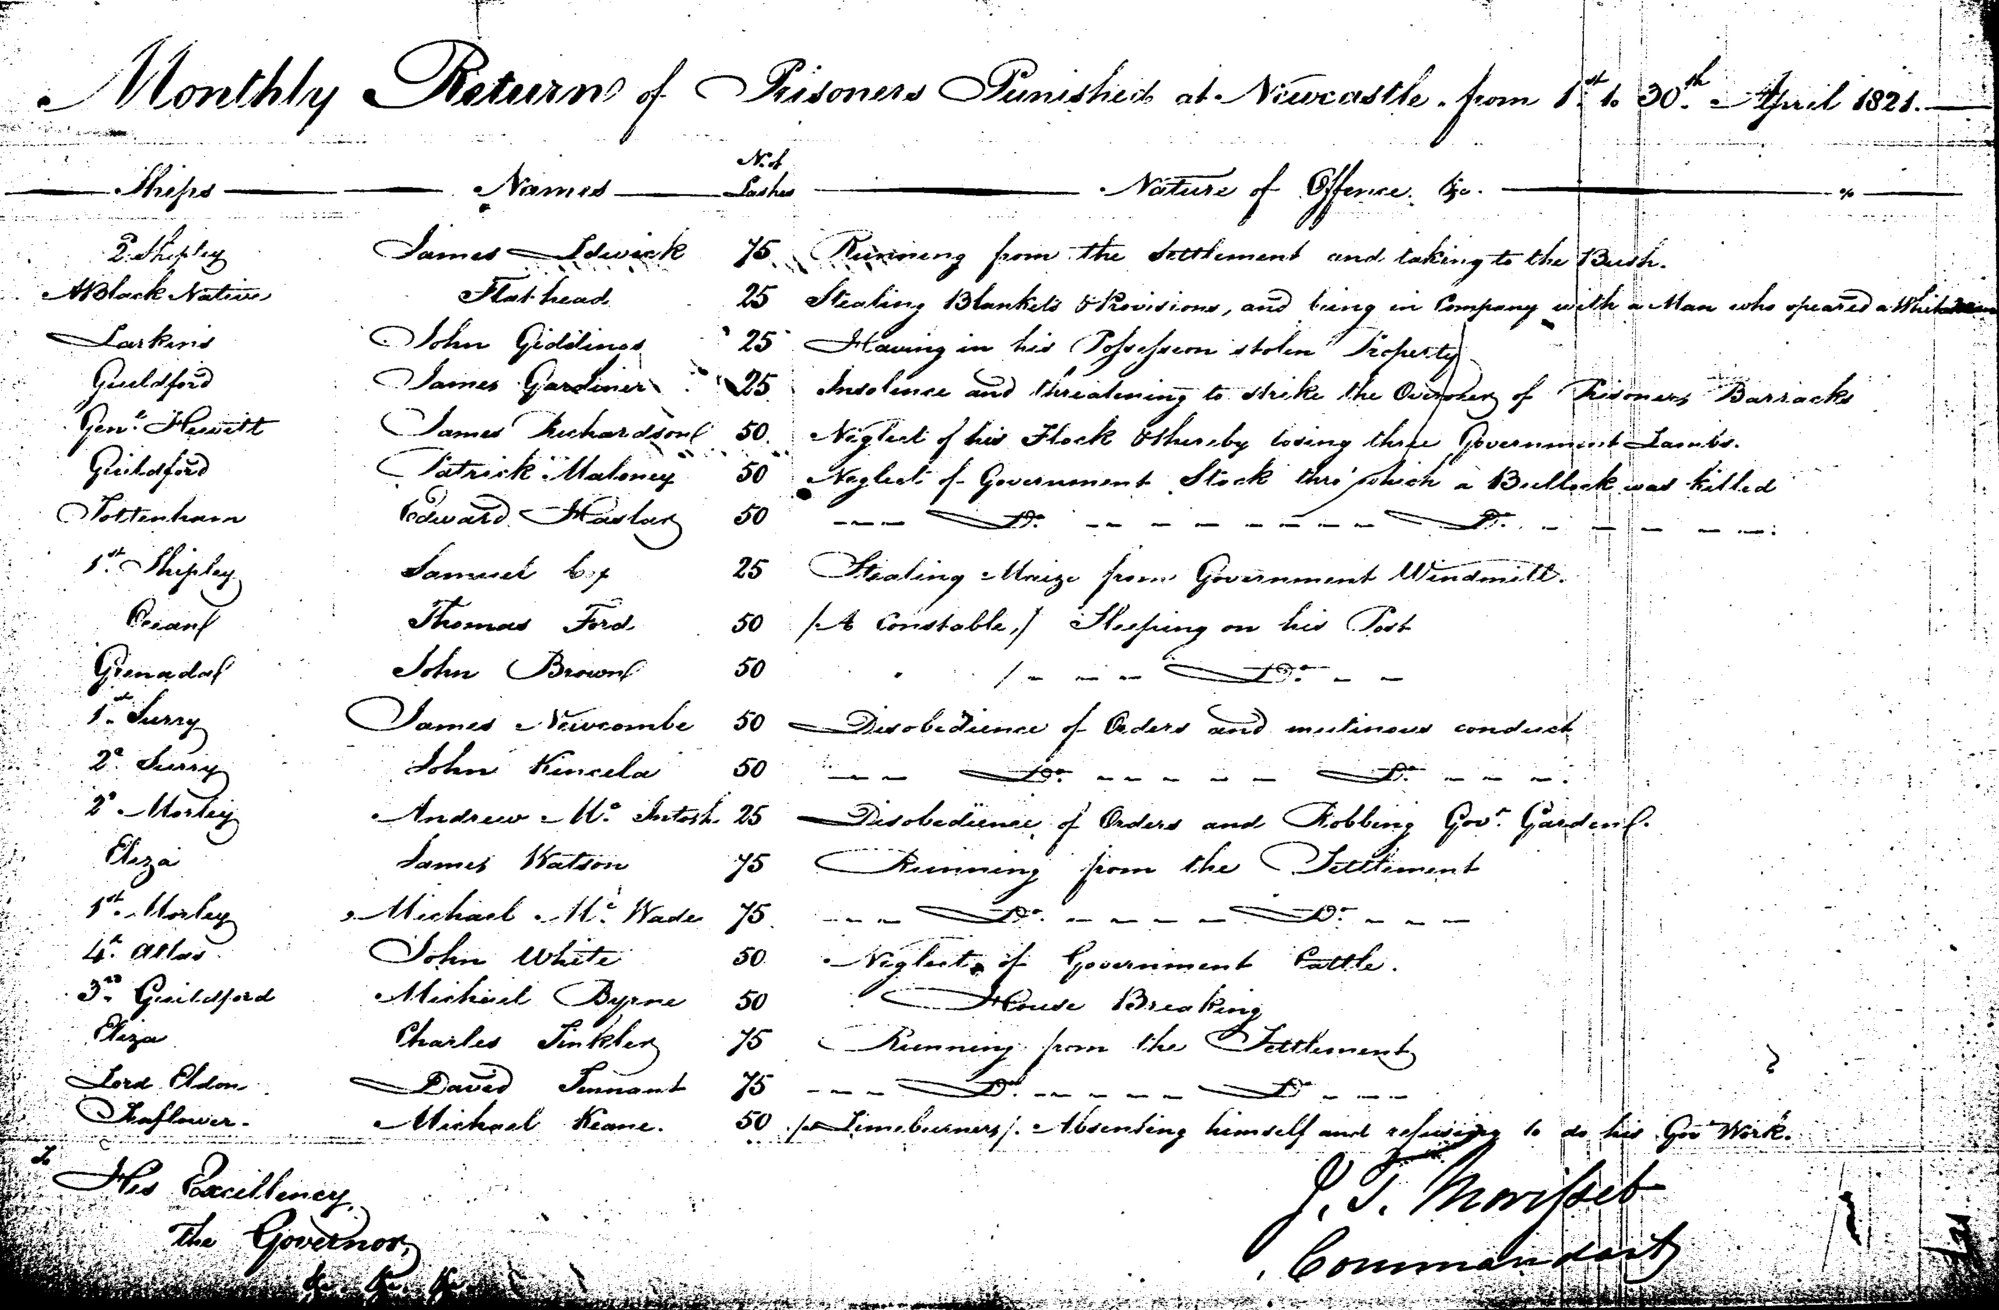 Monthly Return of Prisoners Punished at Newcastle from 1st to 30th April 1821.
Ships Names No. of Lashes Nature of Offence &c.
2d Shipley James 75 Running from the Settlement and taking to the Bush.
A Black Native Flathead 25 Stealing Blankets & Provisions, and being in Company with a Man who speared a White
Larkins John Giddings 25 Having in his Possession stolen Property
Guildford James Gardiner 25 Insolence and threatening to strike the Overseer of Prisoners Barracks
Genl. Hewitt James Richardson 50 Neglect of his Flock & thereby losing three Government Lambs.
Guildford Patrick Maloney 50 Neglect of Government Stock thro' which a Bullock was killed
Tottenham Edward Haslar 50 Do. Do.
1st Shipley Samuel Cox 25 Stealing Maize from Government Windmill.
Ocean Thomas Ford 50 /A Constable,/ Sleeping on his Post
Grenada John Brown 50 / Do.
1st Surry James Newcombe 50 Disobedience of Orders and mutinous conduct
2d Surry John Kincela 50 Do. Do.
2d Morley Andrew Mc Intosh 25 Disobedience of Orders and Robbing Govr. Garden.
Eliza James Watson 75 Running from the Settlement
1st Morley Michael Mc Wade 75 Do. Do.
4th Atlas John White 50 Neglect of Government Cattle.
3rd Guildford Michael Byrne 50 House Breaking
Eliza Charles Tinkler 75 Running from the Settlement
Lord Eldon David Tennant 75 Do. Do.
Seaflower. Michael Keane. 50 Limeburners/. Absenting himself and refusing to do his Govt Work.
To
His Excellency
The Governor,
&c. &c. &c.
J. T. Morisset
Commandant